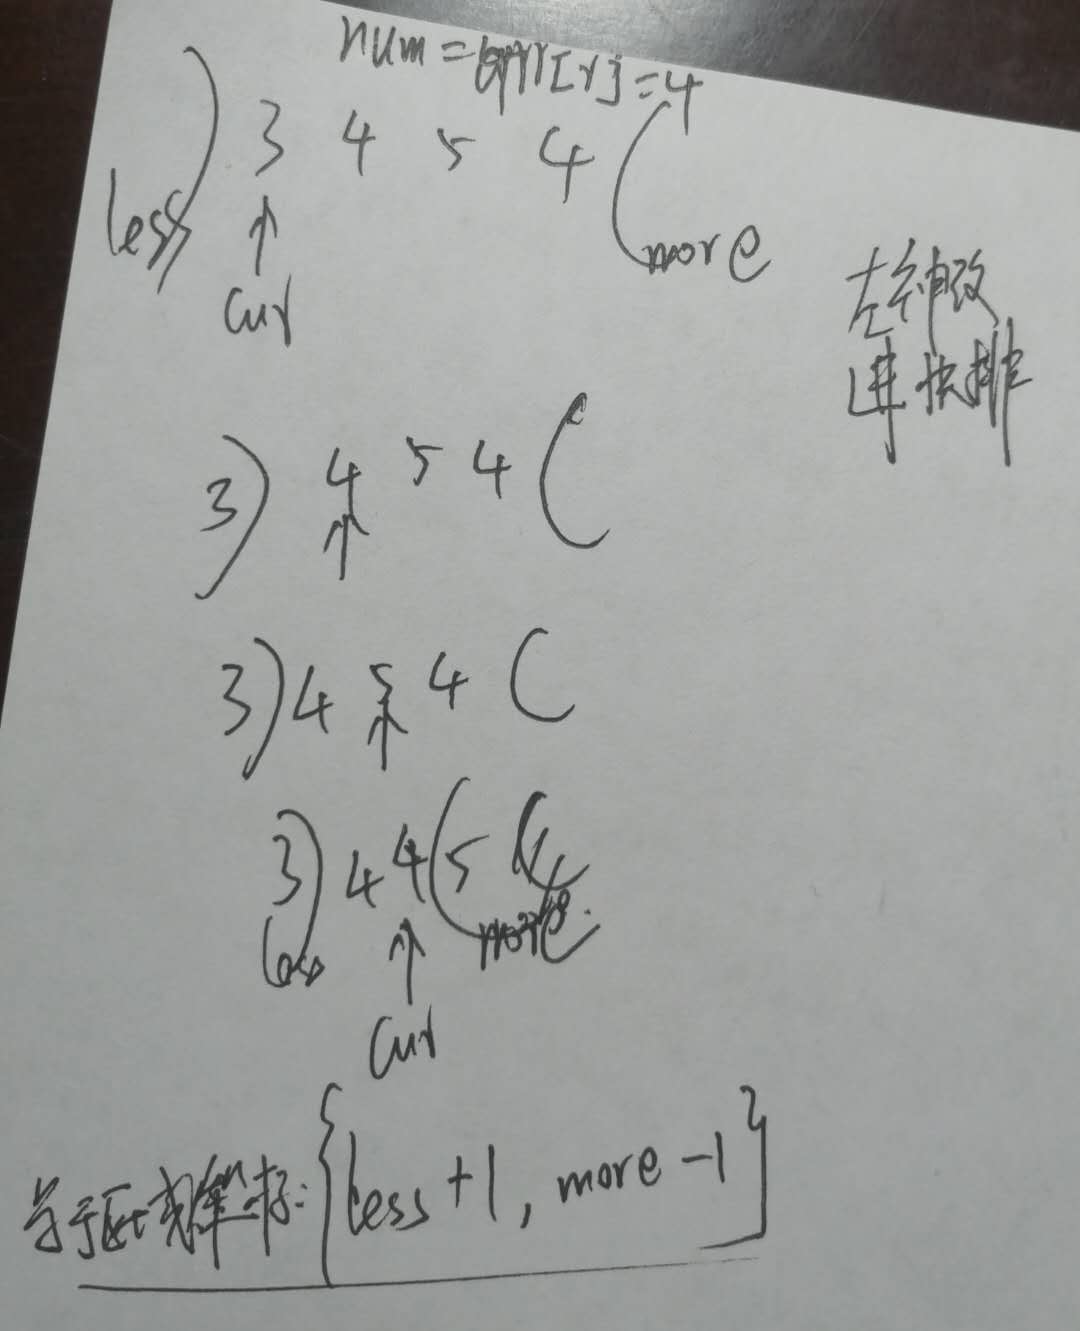 num = arr[r] = 4
less) 3 4 5 4 (more
↑
cur
改
进快排
3) 4 5 4 (
↑
3) 4 5 4 (
↑
3) 4 4 (5
less ↑ more
cur
等于区域坐标: {less +1, more -1}